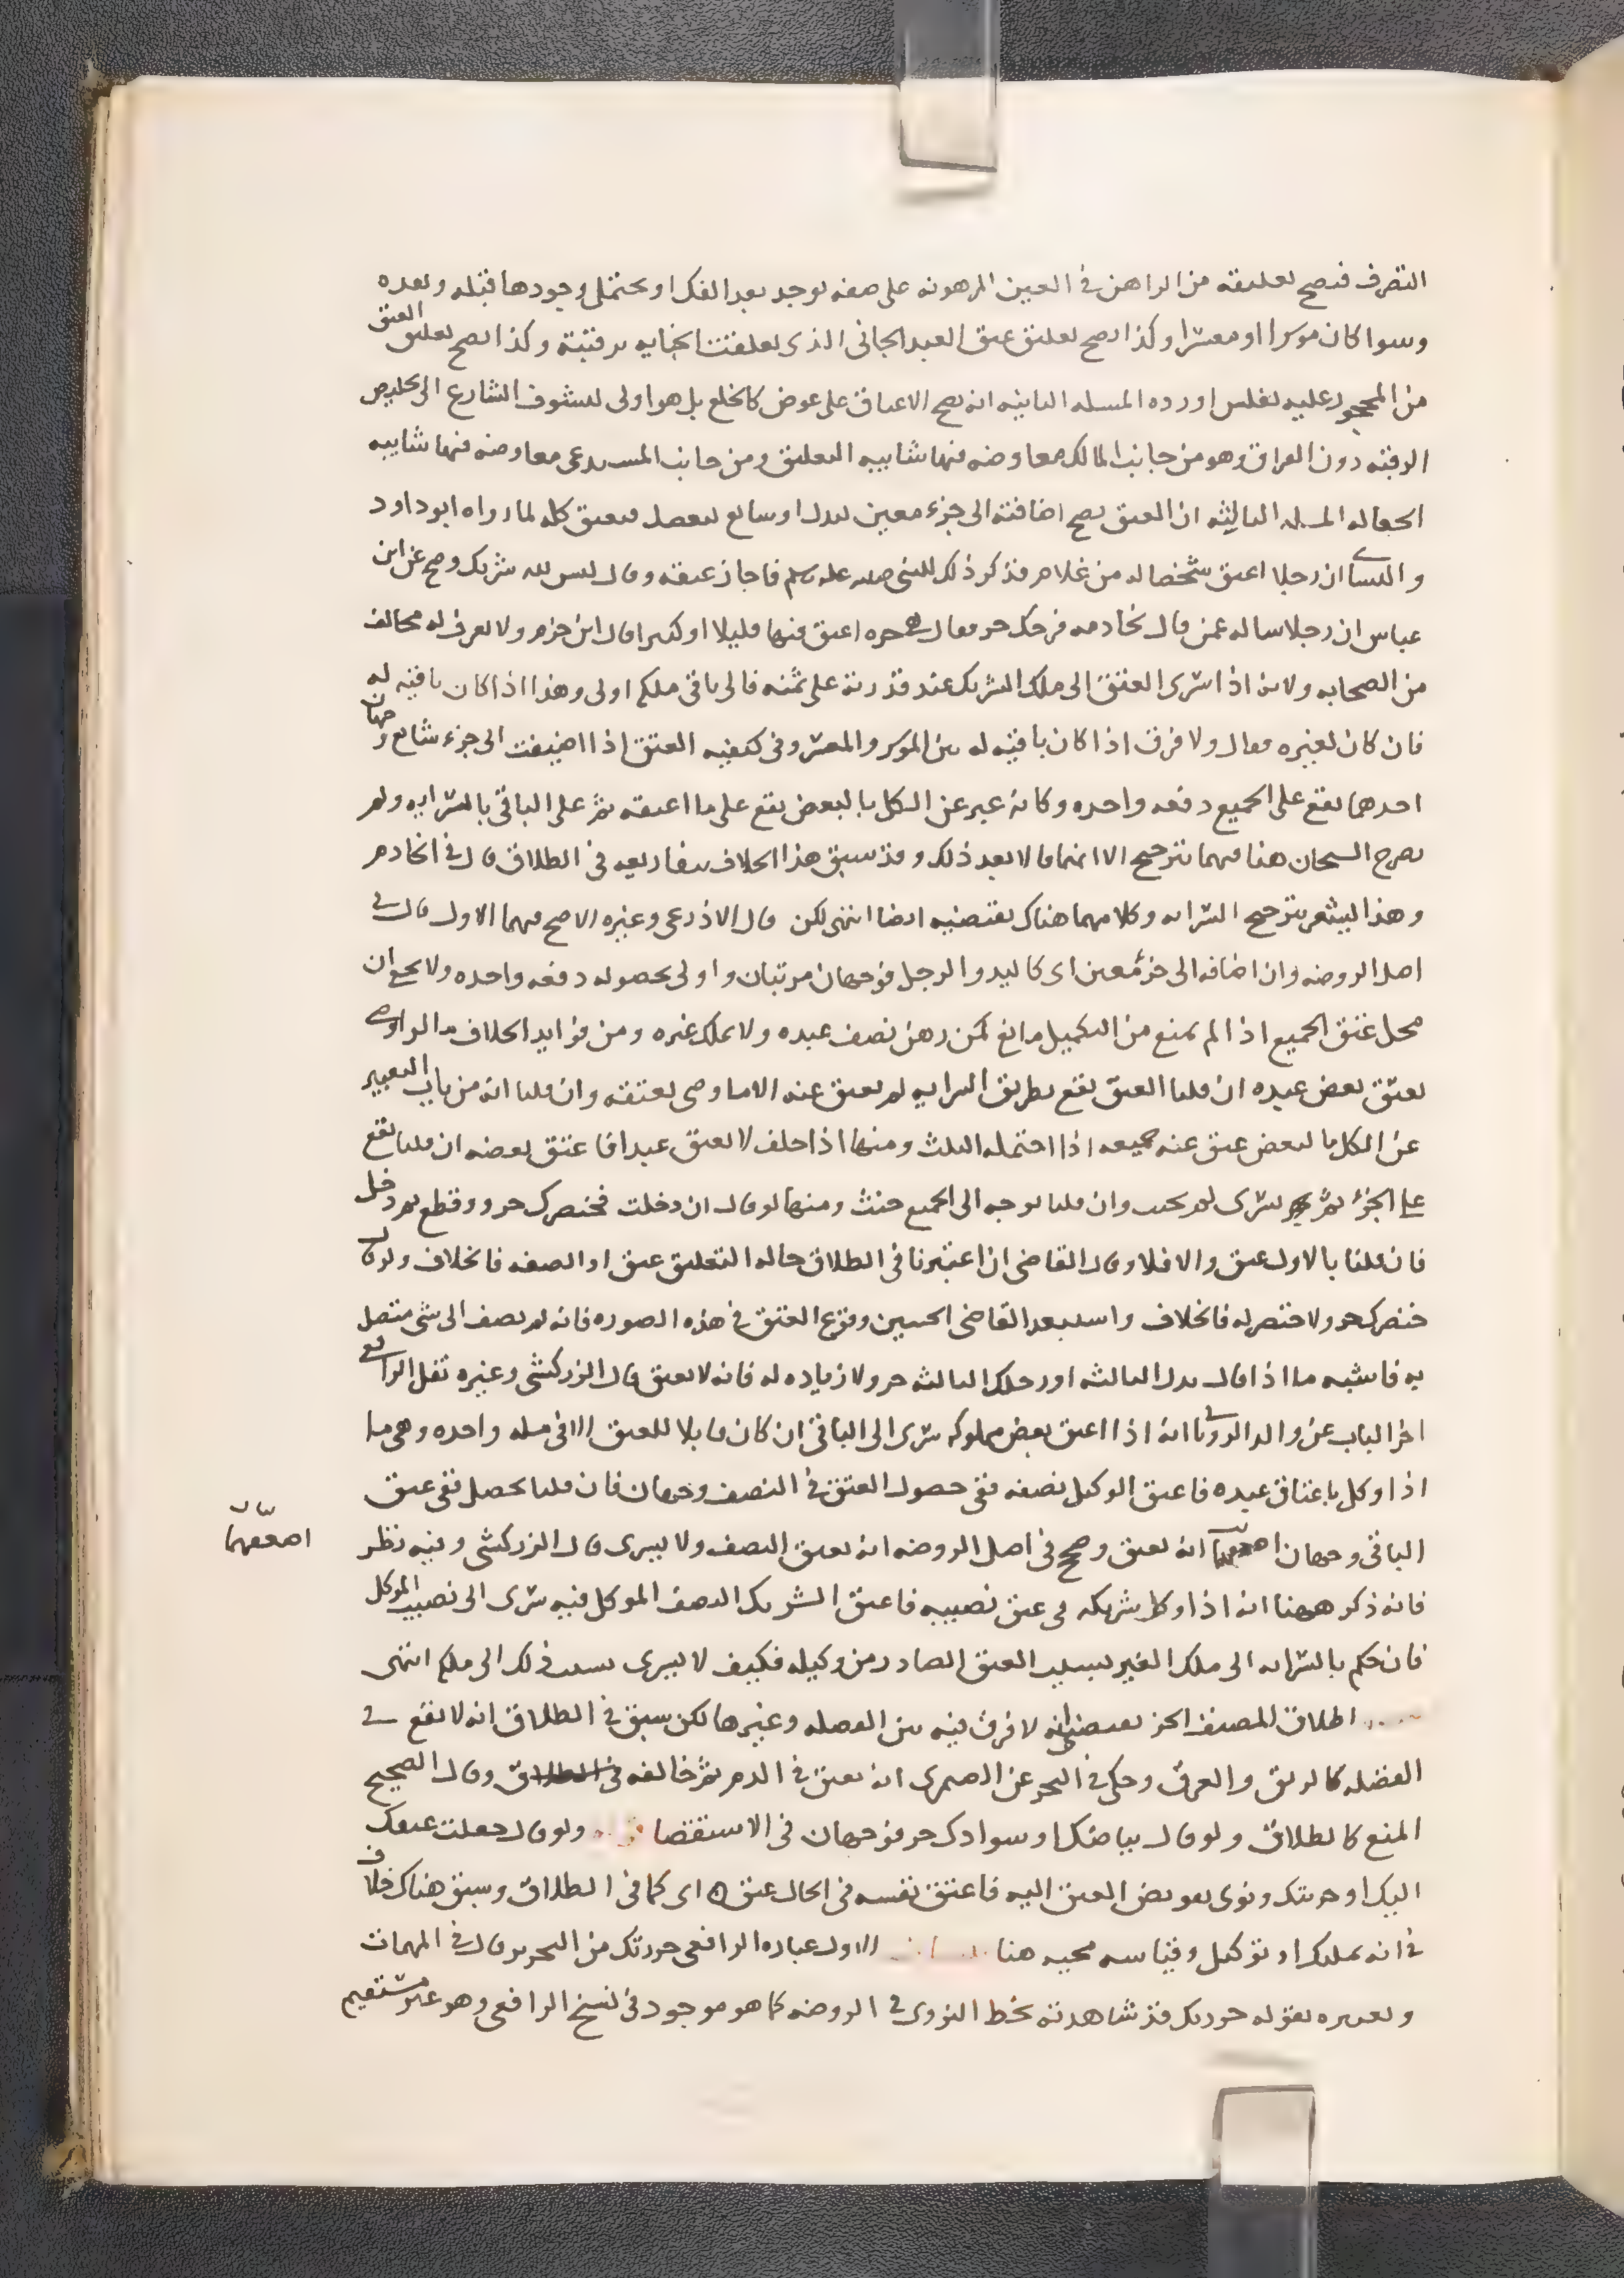 التصرف فيصح تعليقه من الراهن في العين المرهونه على صفه توجد بعد الفك او يحتمل وجودها قبله وبعده
وسوا كان موسرا او معسرا وكذا يصح تعليق عتق العبد الجاني الذي تعلقت الجنايه برقبته وكذا يصح تعليق العتق
من المحجور عليه بفلس اورده المسله الثانيه انه يصح الاعتاق على عوض كالخلع بل هو اولى لتشوف الشارع الى تخليص
الرقبه دون الفراق وهو من جانب المالك معاوضه فيها شايبه التعليق ومن جانب المستدعى معاوضه فيها شايبه
الجعاله المسله الثالثه ان العتق يصح اضافته الى جزء معين كيدك او شايع كبعضك فيعتق كله لما رواه ابو داود
والنسائي ان رجلا اعتق شخصا له من غلام فذكر ذلك للنبي صلى الله عليه وسلم فاجاز عتقه وقال ليس لله شريك وصح عن ابن
عباس ان رجلا ساله عمن قال لخادمه فرجك حر فقال هي حره اعتق منها قليلا او كثيرا قال ابن حزم ولا يعرف له مخالف
من الصحابه ولانه اذا سرى العتق الى ملك الشريك عند قدرته على ثمنه فالى باقي ملكه اولى وهذا اذا كان باقيه له
فان كان لغيره فقال ولا فرق اذا كان باقيه له بين الموسر والمعسر وفي كيفيه العتق اذا اضيفت الى جزء شايع وجهان
احدهما يقع على الجميع دفعه واحده وكانه عبر عن الكل بالبعض يقع على ما اعتقه ثم على الباقي بالسرايه ولم
يصرح الشيخان هنا فيهما بترجيح الا انهما قالا بعد ذلك وقد سبق هذا الخلاف بتفاريعه في الطلاق قال في الخادم
وهذا ليشعر بترجيح السرايه وكلامهما هناك يقتضيه ايضا انتهى لكن قال الاذرعي وغيره الاصح فيهما الاول قال في
اصل الروضه وان اضافه الى جزء معين اى كاليد والرجل فوجهان مرتبان واولى بحصوله دفعه واحده ولا يخفى ان
محل عتق الجميع اذا لم يمنع من التكميل مانع كمن رهن نصف عبده ولا يملك غيره ومن فوايد الخلاف ما لو اوصى
بعتق بعض عبده ان قلنا العتق يقع بطريق السرايه لم يعتق عنه الا ما وصى بعتقه وان قلنا انه من باب التعبير
عن الكل بالبعض عتق عنه جميعه اذا احتمله الثلث ومنها اذا حلف لا يعتق عبدا فاعتق بعضه ان قلنا يقع
على الجزء ثم يسرى لم يحنث وان قلنا يوجه الى الجميع حنث ومنها لو قال ان دخلت فخنصرك حر وقطع ثم دخل
فان قلنا بالاول عتق والا فلا وقال القاضي ان اعتبرنا في الطلاق حاله التعليق عتق او الصفه فالخلاف ولو قال
خنصرك حر ولا خنصر له فالخلاف واستبعد القاضي الحسين وقوع العتق في هذه الصوره فانه لم يضف الى شي متصل
به فاشبه ما اذا قال يدك الثالثه او رجلك الثالثه حر ولا زياده له فانه لا يعتق قال الزركشي وغيره نقل الرافعي
اخر الباب عن والد الروياني انه اذا اعتق بعض مملوكه سرى الى الباقي ان كان قابلا للعتق الا في مسله واحده وهي ما
اذا وكل باعتاق عبده فاعتق الوكيل نصفه ففي حصول العتق في النصف وجهان فان قلنا يحصل ففي عتق
الباقي وجهان اضعفهما انه يعتق وصحح في اصل الروضه انه يعتق النصف ولا يسرى قال الزركشي وفيه نظر
اضعفهما
فانه ذكر ههنا انه اذا وكل شريكه في عتق نصيبه فاعتق الشريك النصف الموكل فيه سرى الى نصيب الموكل
فان حكم بالسرايه الى ملك الغير بسبب العتق الصادر من وكيله فكيف لا يسرى بسبب ذلك الى ملكه انتهى
اطلاق المصنف الجزء يقتضي انه لا فرق فيه بين الفضله وغيرها لكن سبق في الطلاق انه لا يقع في
الفضله كالريق والعرق وحكى في البحر عن الصيمرى انه يعتق في الدم ثم خالفه وقال الصحيح
المنع كالطلاق ولو قال بياضك او سوادك حر فوجهان في الاستقصا ولو قال جعلت عتقك
اليك او حريتك ونوى تفويض العتق اليه فاعتق نفسه في الحال عتق اى كما في الطلاق وسبق هناك خلاف
في انه تمليك او توكيل وقياسه مجيه هنا الاول عباره الرافعي حررتك من التحرير قال في المهمات
وتعبيره بقوله حررتك قد شاهدته بخط النووى في الروضه كما هو موجود في نسخ الرافعي وهو غير مستقيم